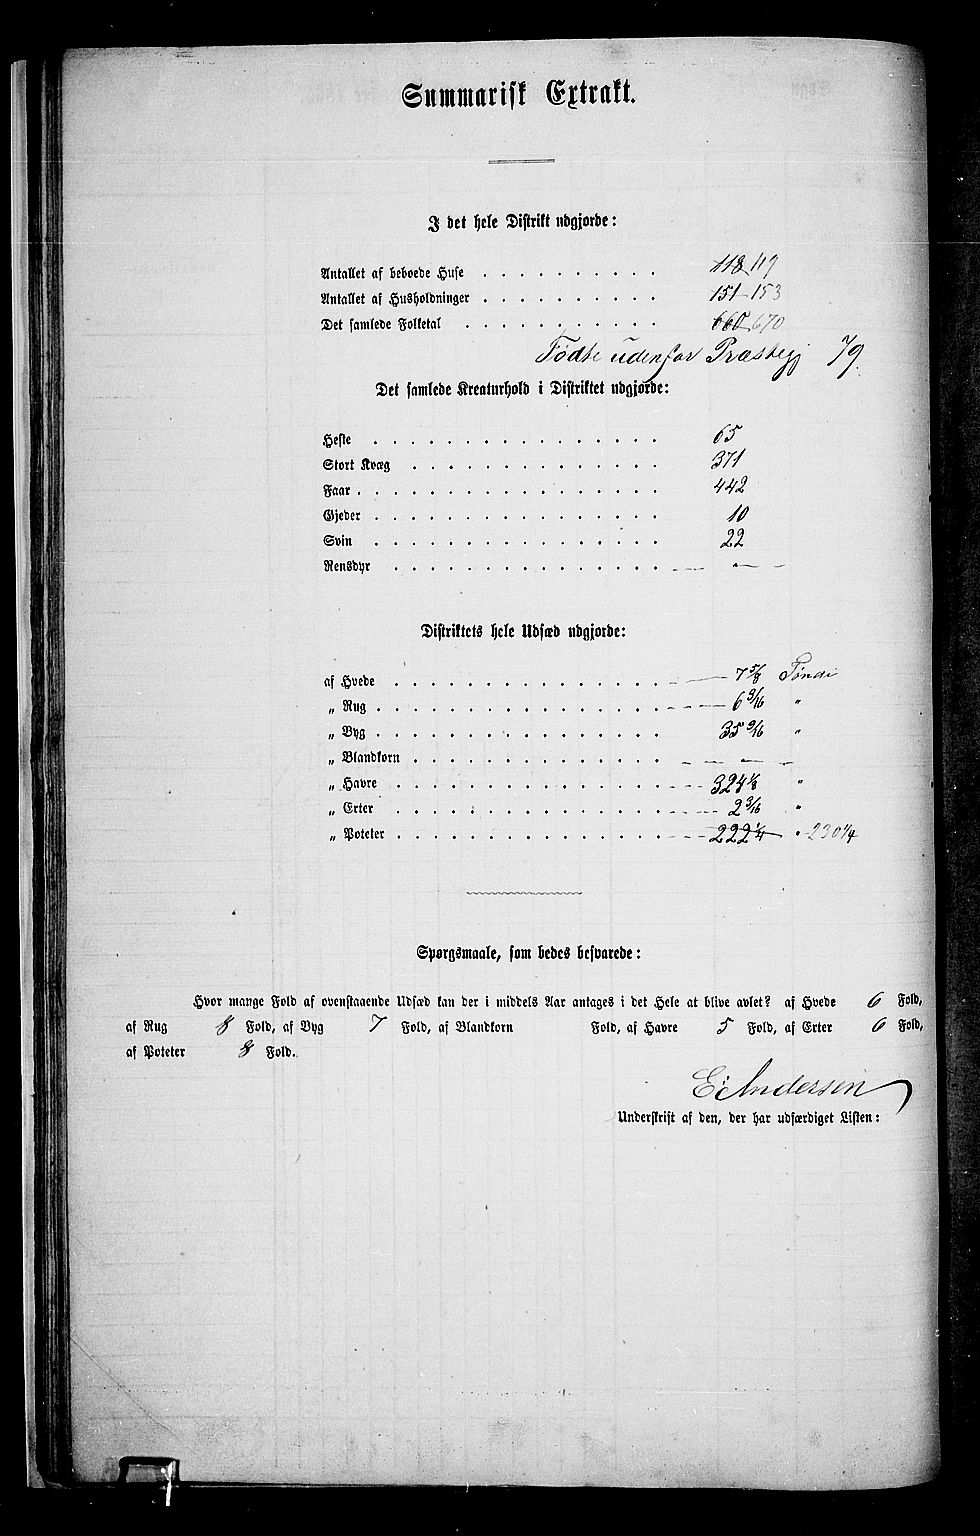 Summarisk Extrakt.
I det hele Distrikt udgjorde:
Antallet af beboede Huse . . . . . . . . . . 118 119
Antallet af Husholdninger . . . . . . . . . . 151 153
Det samlede Folketal . . . . . . . . . . . 660 670
Fødte udenfor Præstegj 79.
Det samlede Kreaturhold i Distriktet udgjorde:
Heste . . . . . . . . . . . . . . . 65
Stort Kvæg . . . . . . . . . . . . . 371
Faar . . . . . . . . . . . . . . . . 442
Gjeder . . . . . . . . . . . . . . . 10
Svin . . . . . . . . . . . . . . . 22
Rensdyr . . . . . . . . . . . . . . — " —
Distriktets hele Udsæd udgjorde:
af Hvede . . . . . . . . . . . . . . 7 5/8 Tønde
„ Rug . . . . . . . . . . . . . . . 6 3/16 "
„ Byg . . . . . . . . . . . . . . . 35 9/16 "
„ Blandkorn . . . . . . . . . . . . — — —
„ Havre . . . . . . . . . . . . . . 324 1/8 "
„ Erter . . . . . . . . . . . . . . 2 3/16 "
„ Poteter . . . . . . . . . . . . . . 222 1/4 " 230 1/4
Spørgsmaale, som bedes besvarede:
Hvor mange Fold af ovenstaaende Udsæd kan der i middels Aar antages i det Hele at blive avlet? af Hvede 6 Fold,
af Rug 8 Fold, af Byg 7 Fold, af Blandkorn Fold, af Havre 5 Fold, af Erter 6 Fold,
af Poteter 8 Fold.
E: Andersen
Underskrift af den, der har udfærdiget Listen: